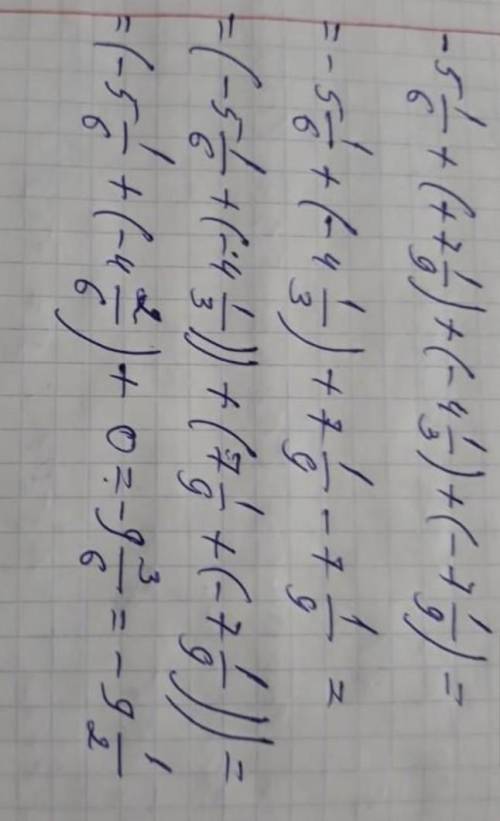 -5 1/6 + (+7 1/9) + (-4 1/3) + (-7 1/9) =
= -5 1/6 + (-4 1/3) + 7 1/9 - 7 1/9 =
= (-5 1/6 + (-4 1/3)) + (7 1/9 + (-7 1/9)) =
= (-5 1/6 + (-4 2/6) + 0 = -9 3/6 = -9 1/2